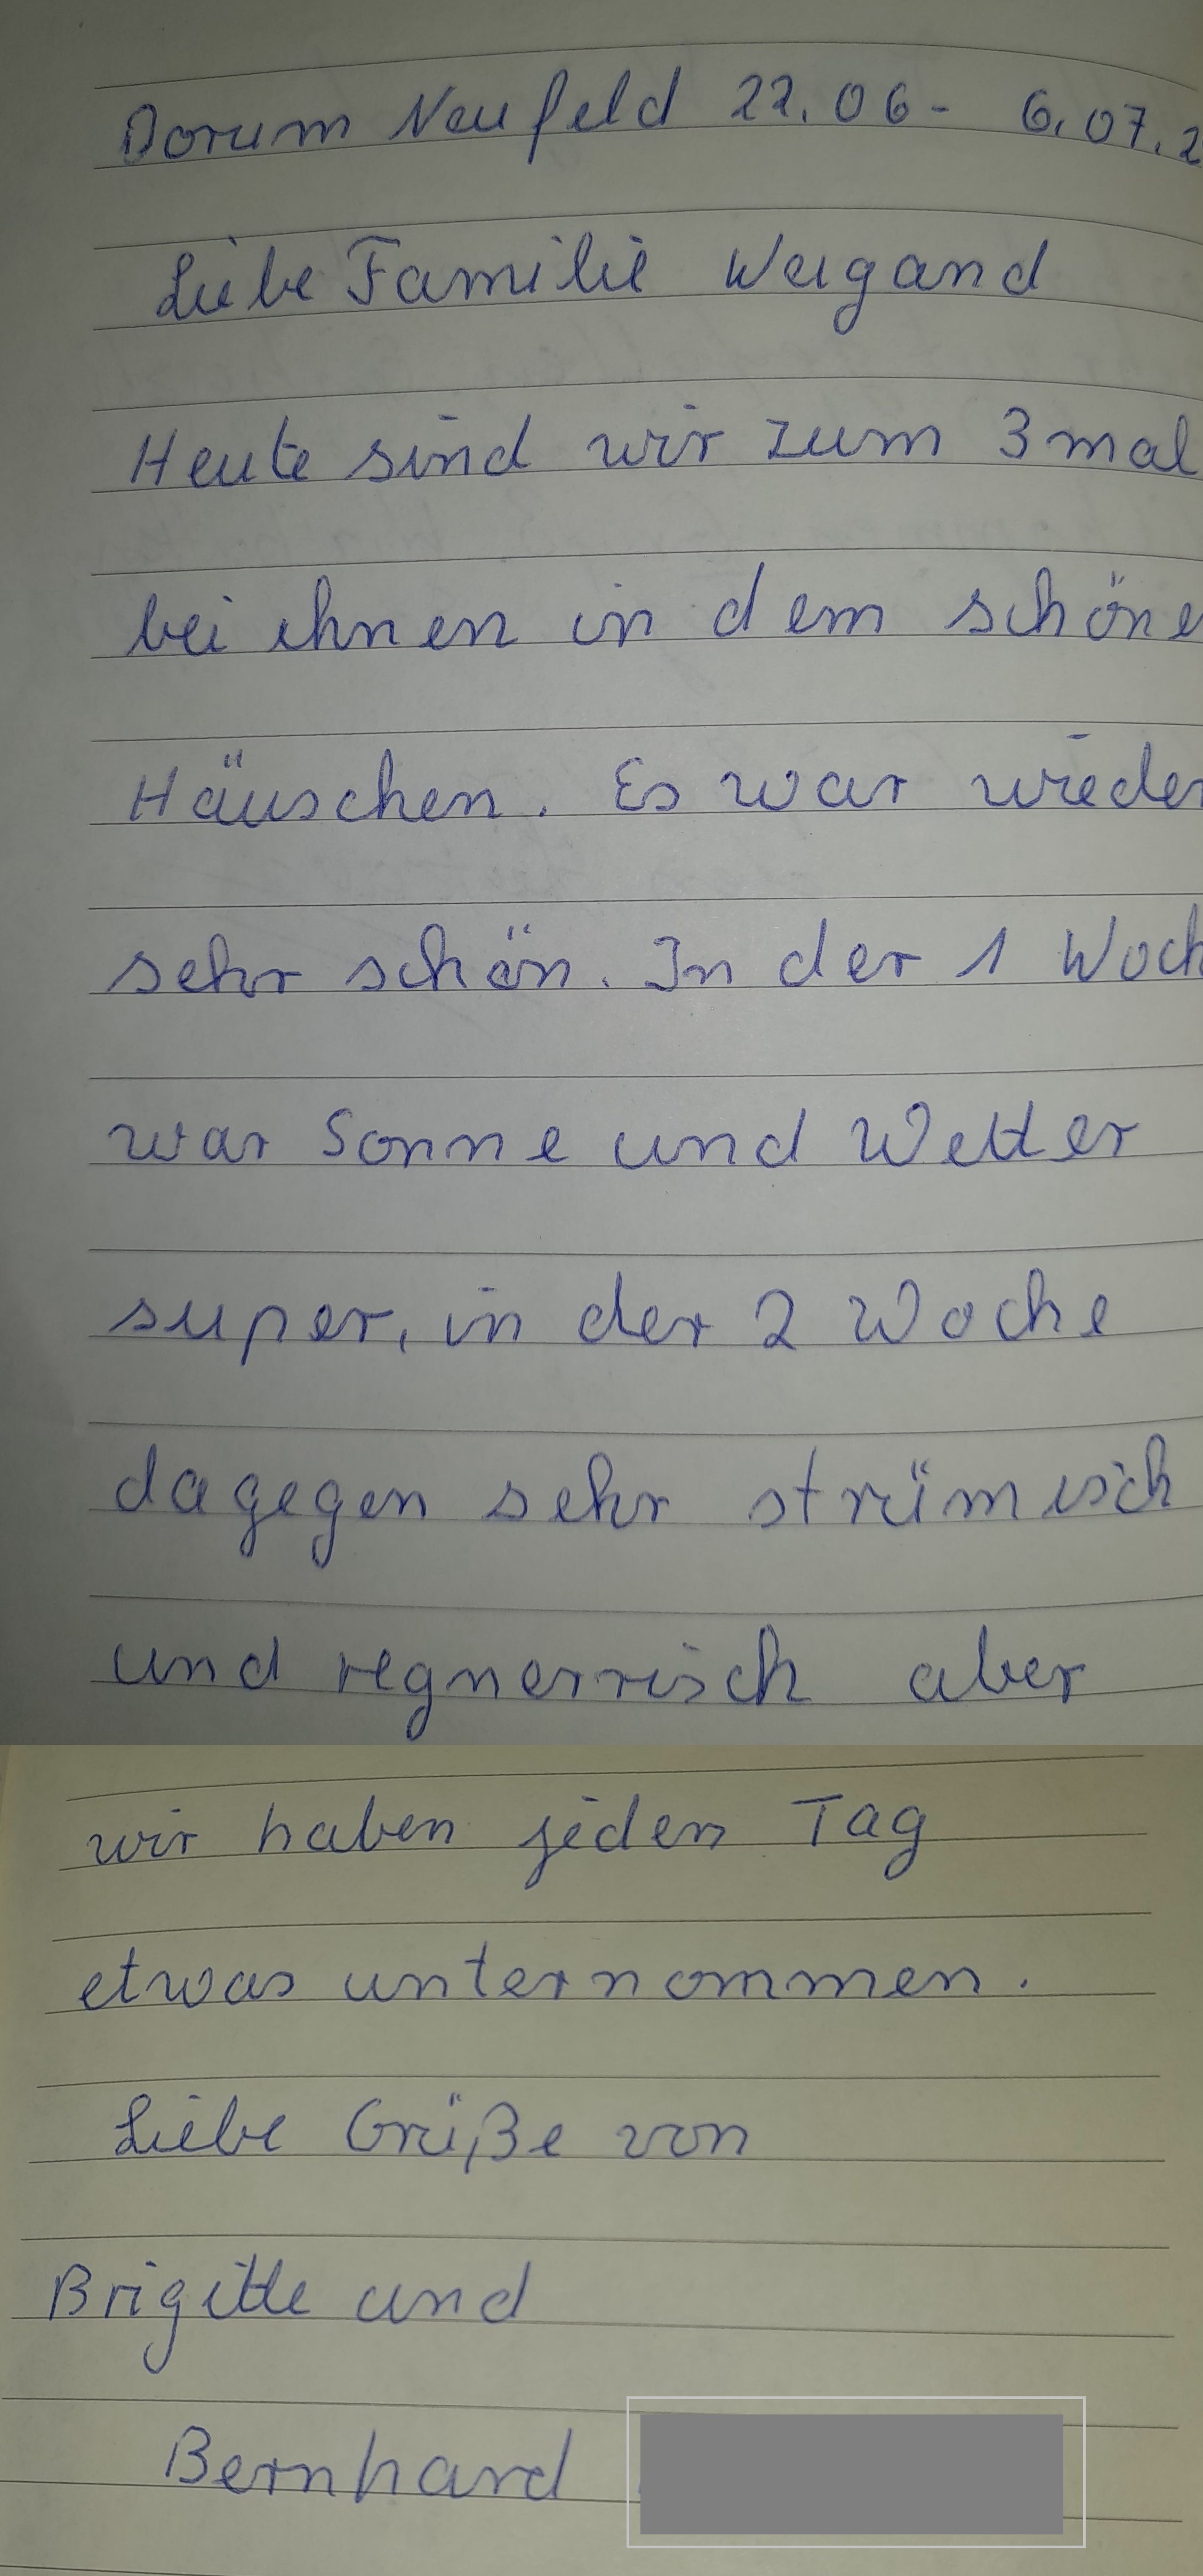 Dorum Neufeld 22.06 - 6.07.2
Liebe Familie Weigand
Heute sind wir zum 3 mal
bei ihnen in dem schöne
Häuschen. Es war wieder
sehr schön. In der 1 Woch
war Sonne und Wetter
super, in der 2 Woche
dagegen sehr strümisch
und regnerrisch aber
wir haben jeden Tag
etwas unternommen.
Liebe Grüße von
Brigitte und
Bernhard